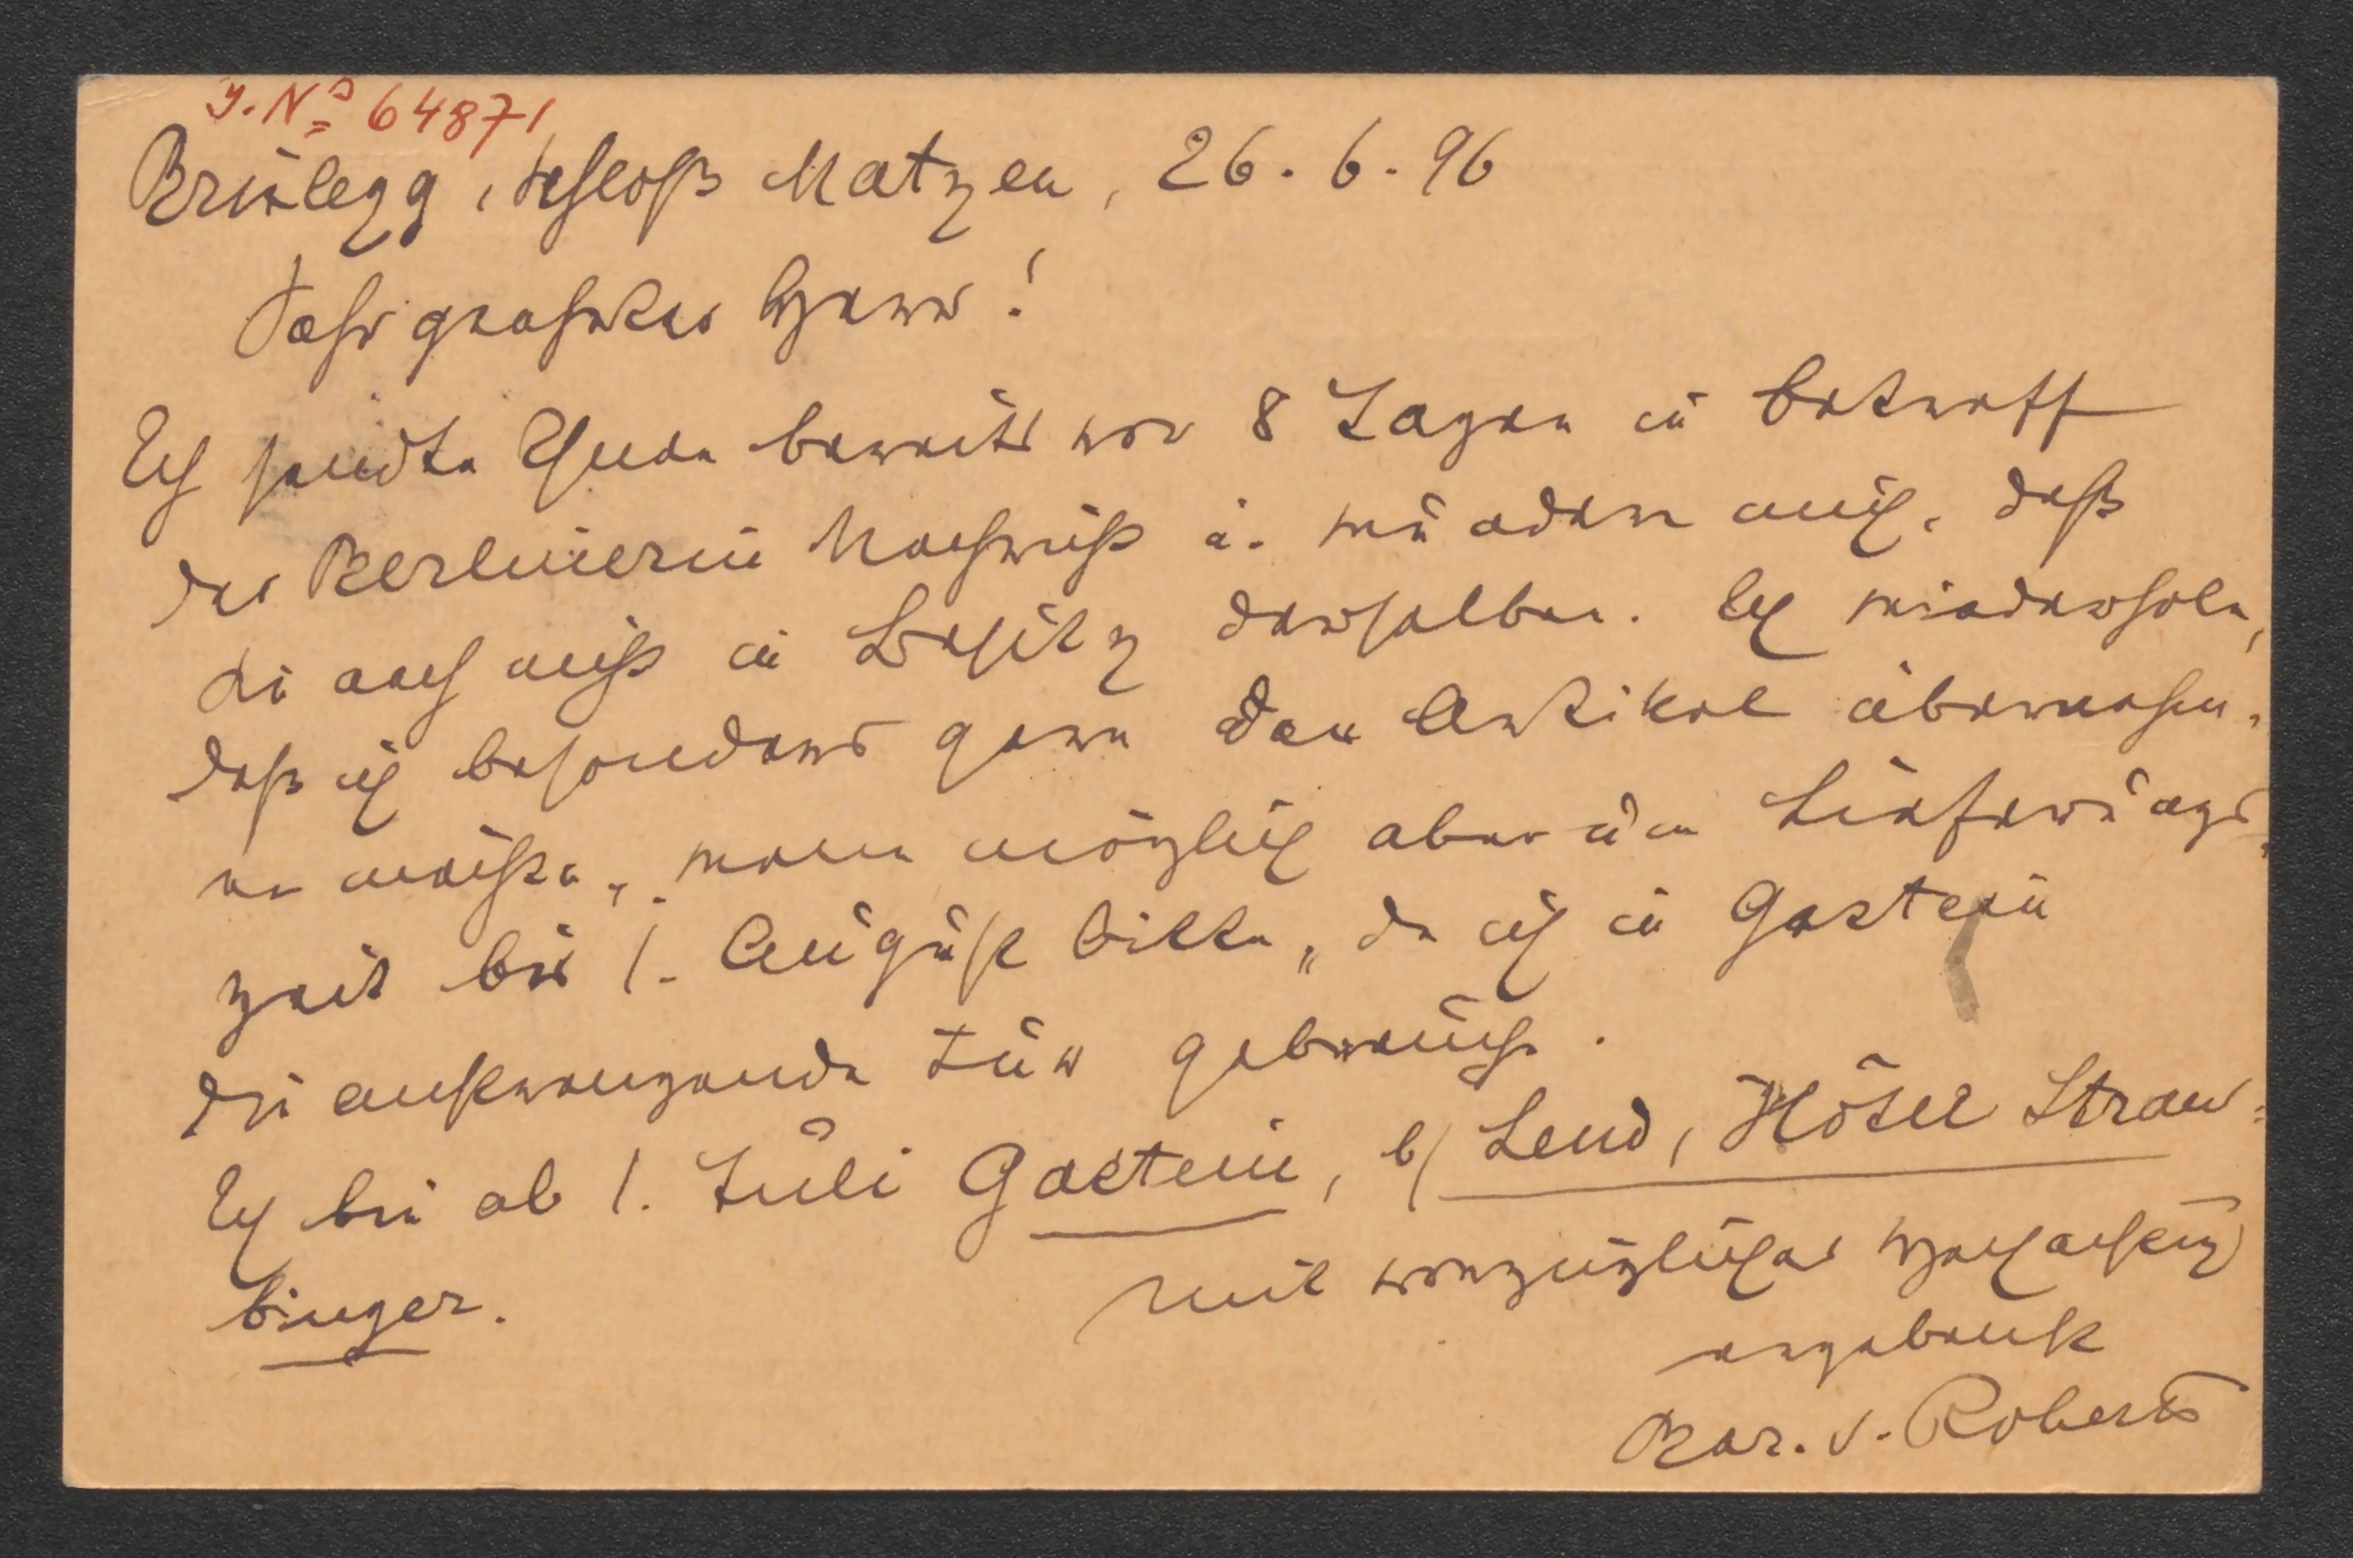 J. Nº 64871
Brixlegg, Schloß Matzen, 26. 6. 96
Sehr geehrter Herr!
Ich sandte Ihnen bereits vor 8 Tagen in Betreff
der Berlinerin Nachricht u. wundere mich, daß
Sie noch nicht in Besitz derselben. Ich wiederhole,
daß ich besonders gern den Artikel übernehmen
möchte, wenn möglich aber um Lieferungs-
zeit bis 1. August bitte, da ich in Gastein
die anstrengende Kur gebrauche.
Ich bin ab 1. Juli Gastein, b/ Lend, Hôtel Strau=
binger.
Mit vorzüglicher Hochachtung
ergebenst
Bar. v. Roberts